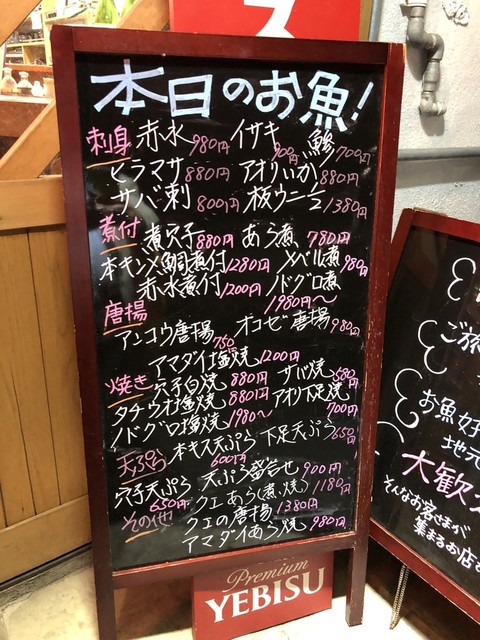 本日のお魚!
刺身 赤水 980円 イサキ 900円 鯵 700円
ヒラマサ 880円 アオリいか 880円
サバ刺 800円 板ウニ 1380円
煮付 煮穴子 880円 あら煮 780円
本キンメ鯛煮付 1280円 メバル煮 980円
赤水煮付 1200円 ノドグロ煮 1980円〜
唐揚
アンコウ唐揚 750 オコゼ唐揚 980円
アマダイ塩焼 1200円
焼き 穴子白焼 880円 サバ焼 580円
タチウオ塩焼 880円 アオリ下足焼 700円
ノドグロ塩焼 1980〜
天ぷら 本キス天ぷら 600円 下足天ぷら 650円
穴子天ぷら 650円 天ぷら盛合せ 900円
その他 クエあら(煮、焼) 1180円
クエの唐揚 1380円
アマダイあら焼 980円
Premium
YEBISU
ご旅
お魚好
地元
大歓
そんなお客さまが
集まるお店